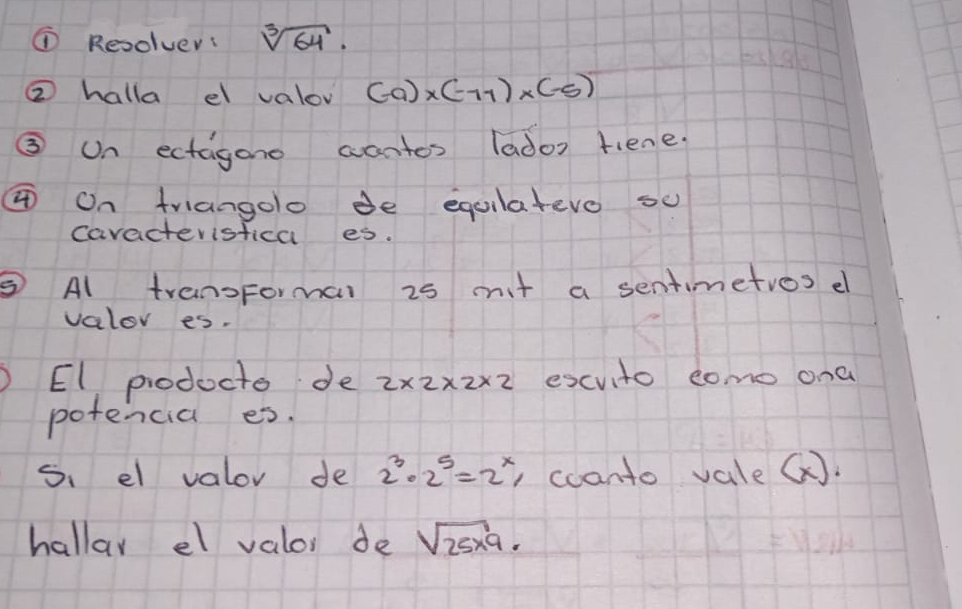 ① Resolver: ∛64.
② halla el valor (-9)x(-11)x(-5)
③ Un ectágono cuantos lados tiene.
④ Un triangulo de equilatero su
caracteristica es.
⑤ Al transformar 25 mit a sentimetros el
valor es.
El producto de 2x2x2x2 escrito como una
potencia es.
Si el valor de 2³·2⁵=2ˣ, cuanto vale (x).
hallar el valor de √25x9.